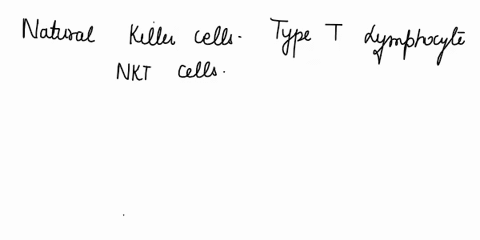 Natural Killer cells. Type T Lymphocyte
NKT cells.